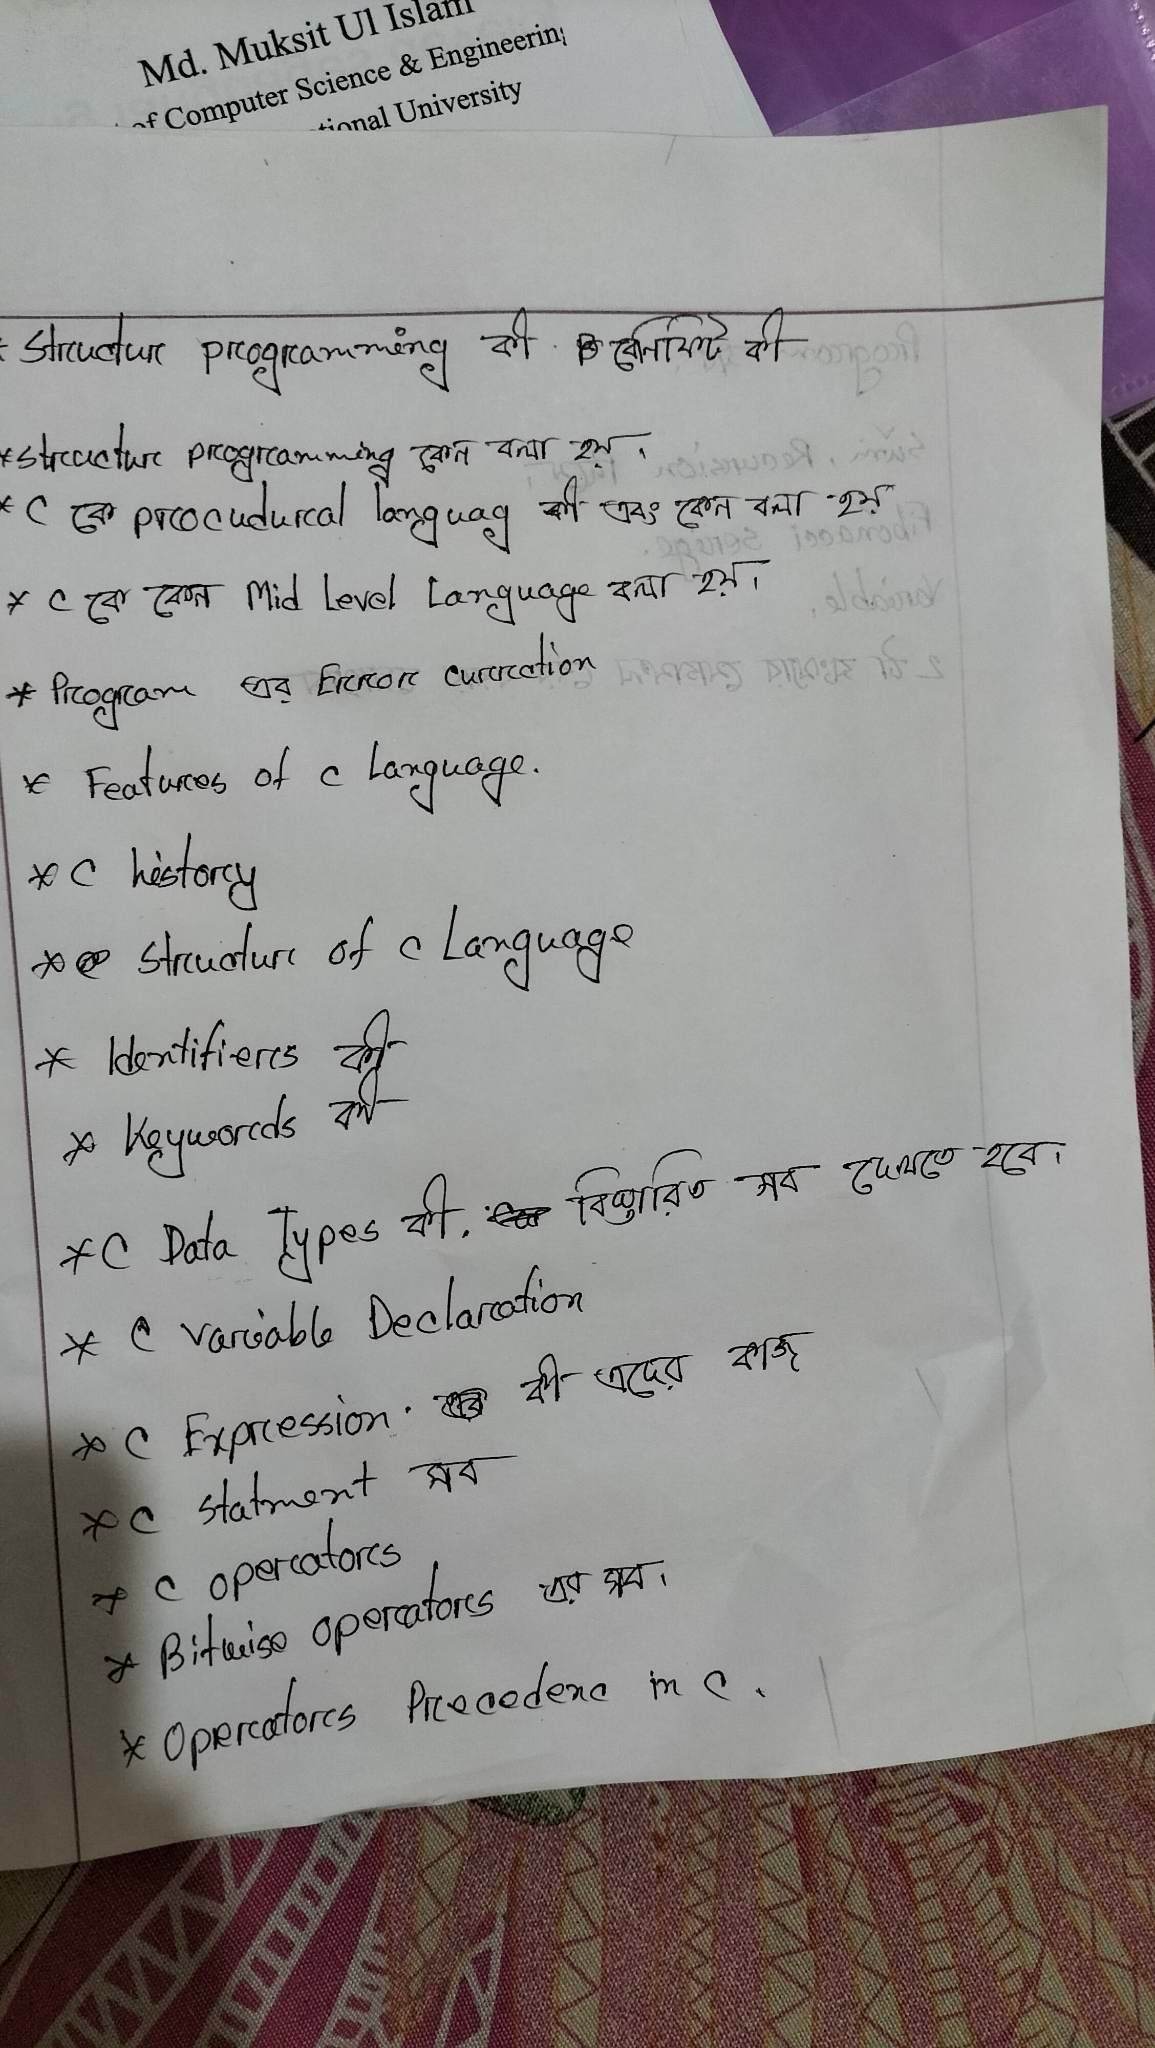 Md. Muksit Ul Islam
of Computer Science & Engineering
tional University
* Structure programming কী. বেনিফিট কী
* Structure programming কেন বলা হয়।
* C কে procudural languag কী এবং কেন বলা হয়
* C কে কেন Mid Level Language বলা হয়।
* Program এর Error currection
* Features of c Language.
* C history
* Structure of c Language
* Identifiers কী
* Keywords কী
* C Data Types কী. বিস্তারিত সব দেখতে হবে।
* C variable Declaration
* C Expression. কী এদের কাজ
* C statment সব
* C operators
* Bitwise operators এর সব।
* Operators Precedenc in C.